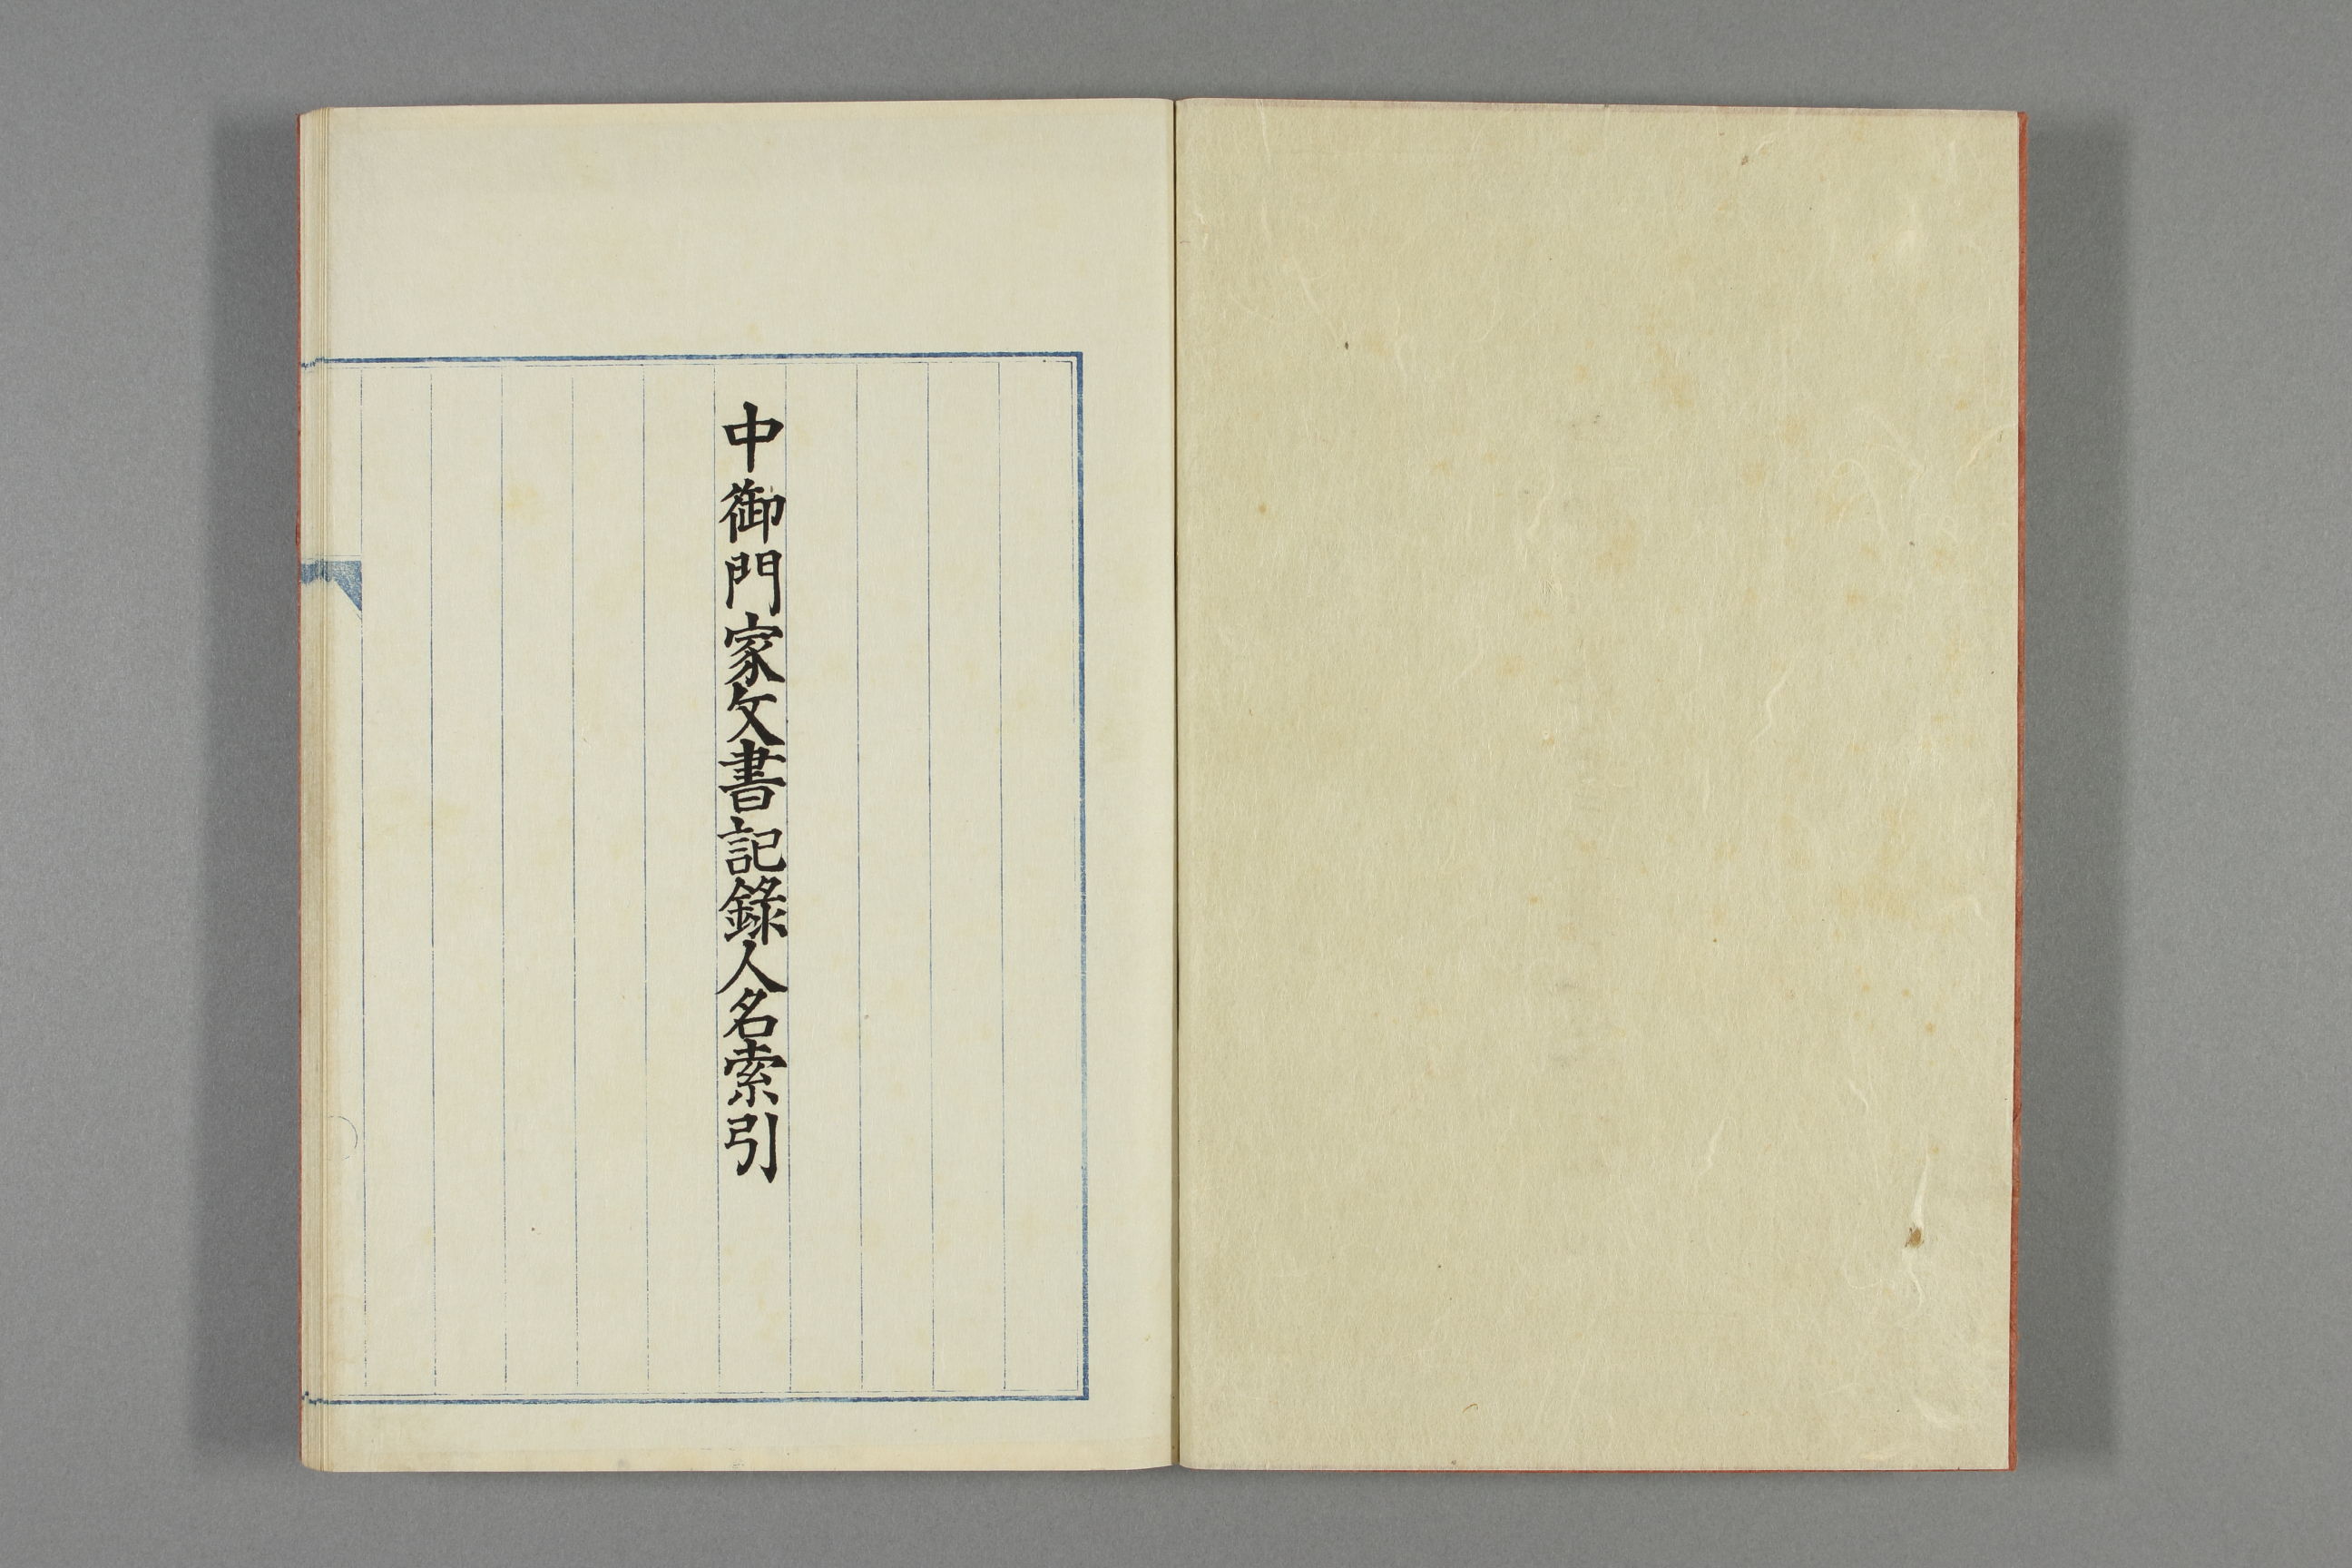 中御門家文書記錄人名索引